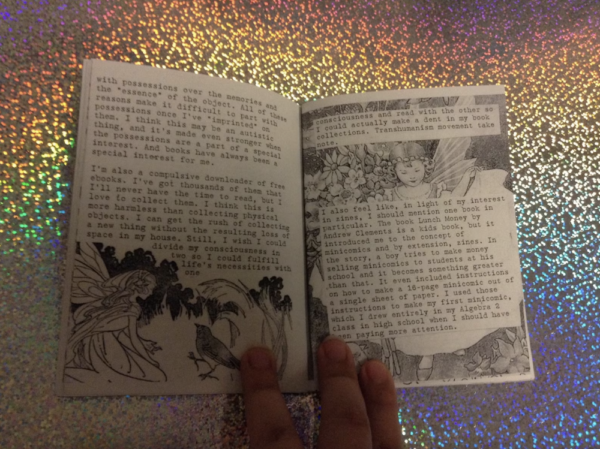 with possessions over the memories and
the "essence" of the object. All of these
reasons make it difficult to part with
possessions once I've "imprinted" on
them. I think this may be an autistic
thing, and it's made even stronger when
the possessions are a part of a special
interest. And books have always been a
special interest for me.
I'm also a compulsive downloader of free
ebooks. I've got thousands of them that
I'll never have the time to read, but I
love to collect them. I think this is
more harmless than collecting physical
objects. I can get the rush of collecting
a new thing without the resulting lack of
space in my house. Still, I wish I could
divide my consciousness in
two so I could fulfill
life's necessities with
one
consciousness and read with the other so
I could actually make a dent in my book
collections. Transhumanism movement take
note.
I also feel like, in light of my interest
in zines, I should mention one book in
particular. The book Lunch Money by
Andrew Clements is a kids book, but it
introduced me to the concept of
minicomics and by extension, zines. In
the story, a boy tries to make money
selling minicomics to students at his
school and it becomes something greater
than that. It even included instructions
on how to make a 16-page minicomic out of
a single sheet of paper. I used those
instructions to make my first minicomic,
which I drew entirely in my Algebra 2
class in high school when I should have
been paying more attention.